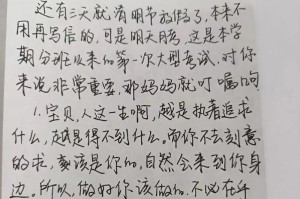 还有三天就清明节放假了，本来不
用再写信的，可是明天月考，这是本学
期分班以来的第一次大型考试，对你
来说非常重要，那妈妈就叮嘱几句
1.宝贝，人这一生啊，越是执着追求
什么，越是得不到什么。而你不去刻意
的求，要该是你的，自然会来到你身
边。所以，做好你该做的，不必在乎